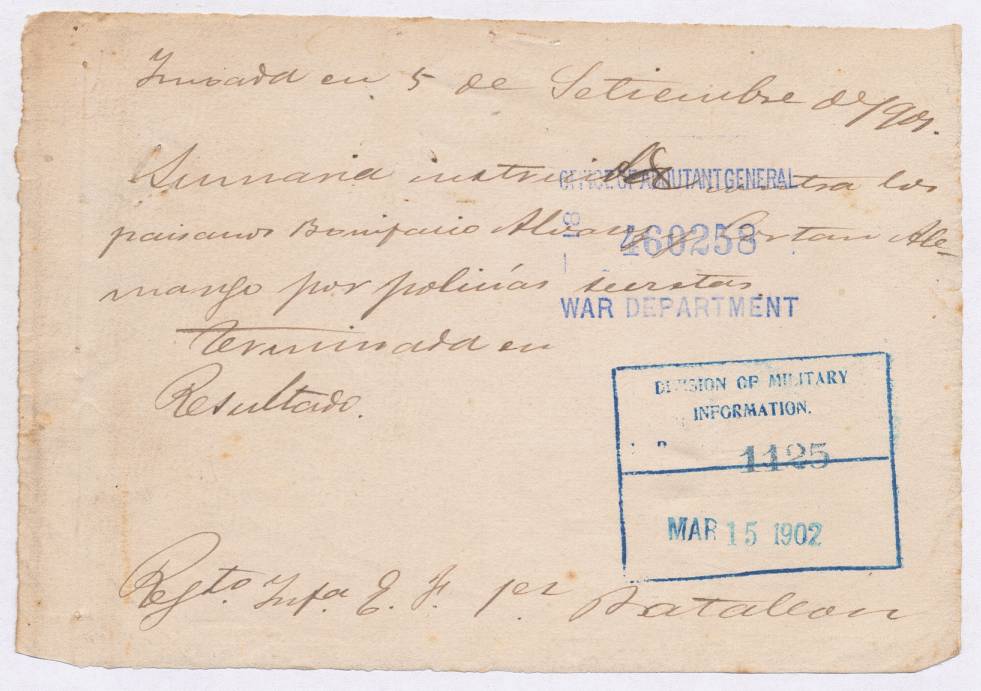 Iniciada en 5 de Setiembre de 1901.
Sumaria instruida contra los
paisanos Bonifacio Alvarez y Ale-
mango por policías secretas
Terminada en
Resultado.
OFFICE OF ADJUTANT GENERAL
460258
WAR DEPARTMENT
DIVISION OF MILITARY
INFORMATION.
1125
MAR 15 1902
Regto. Infa E. F. 1er Batallon